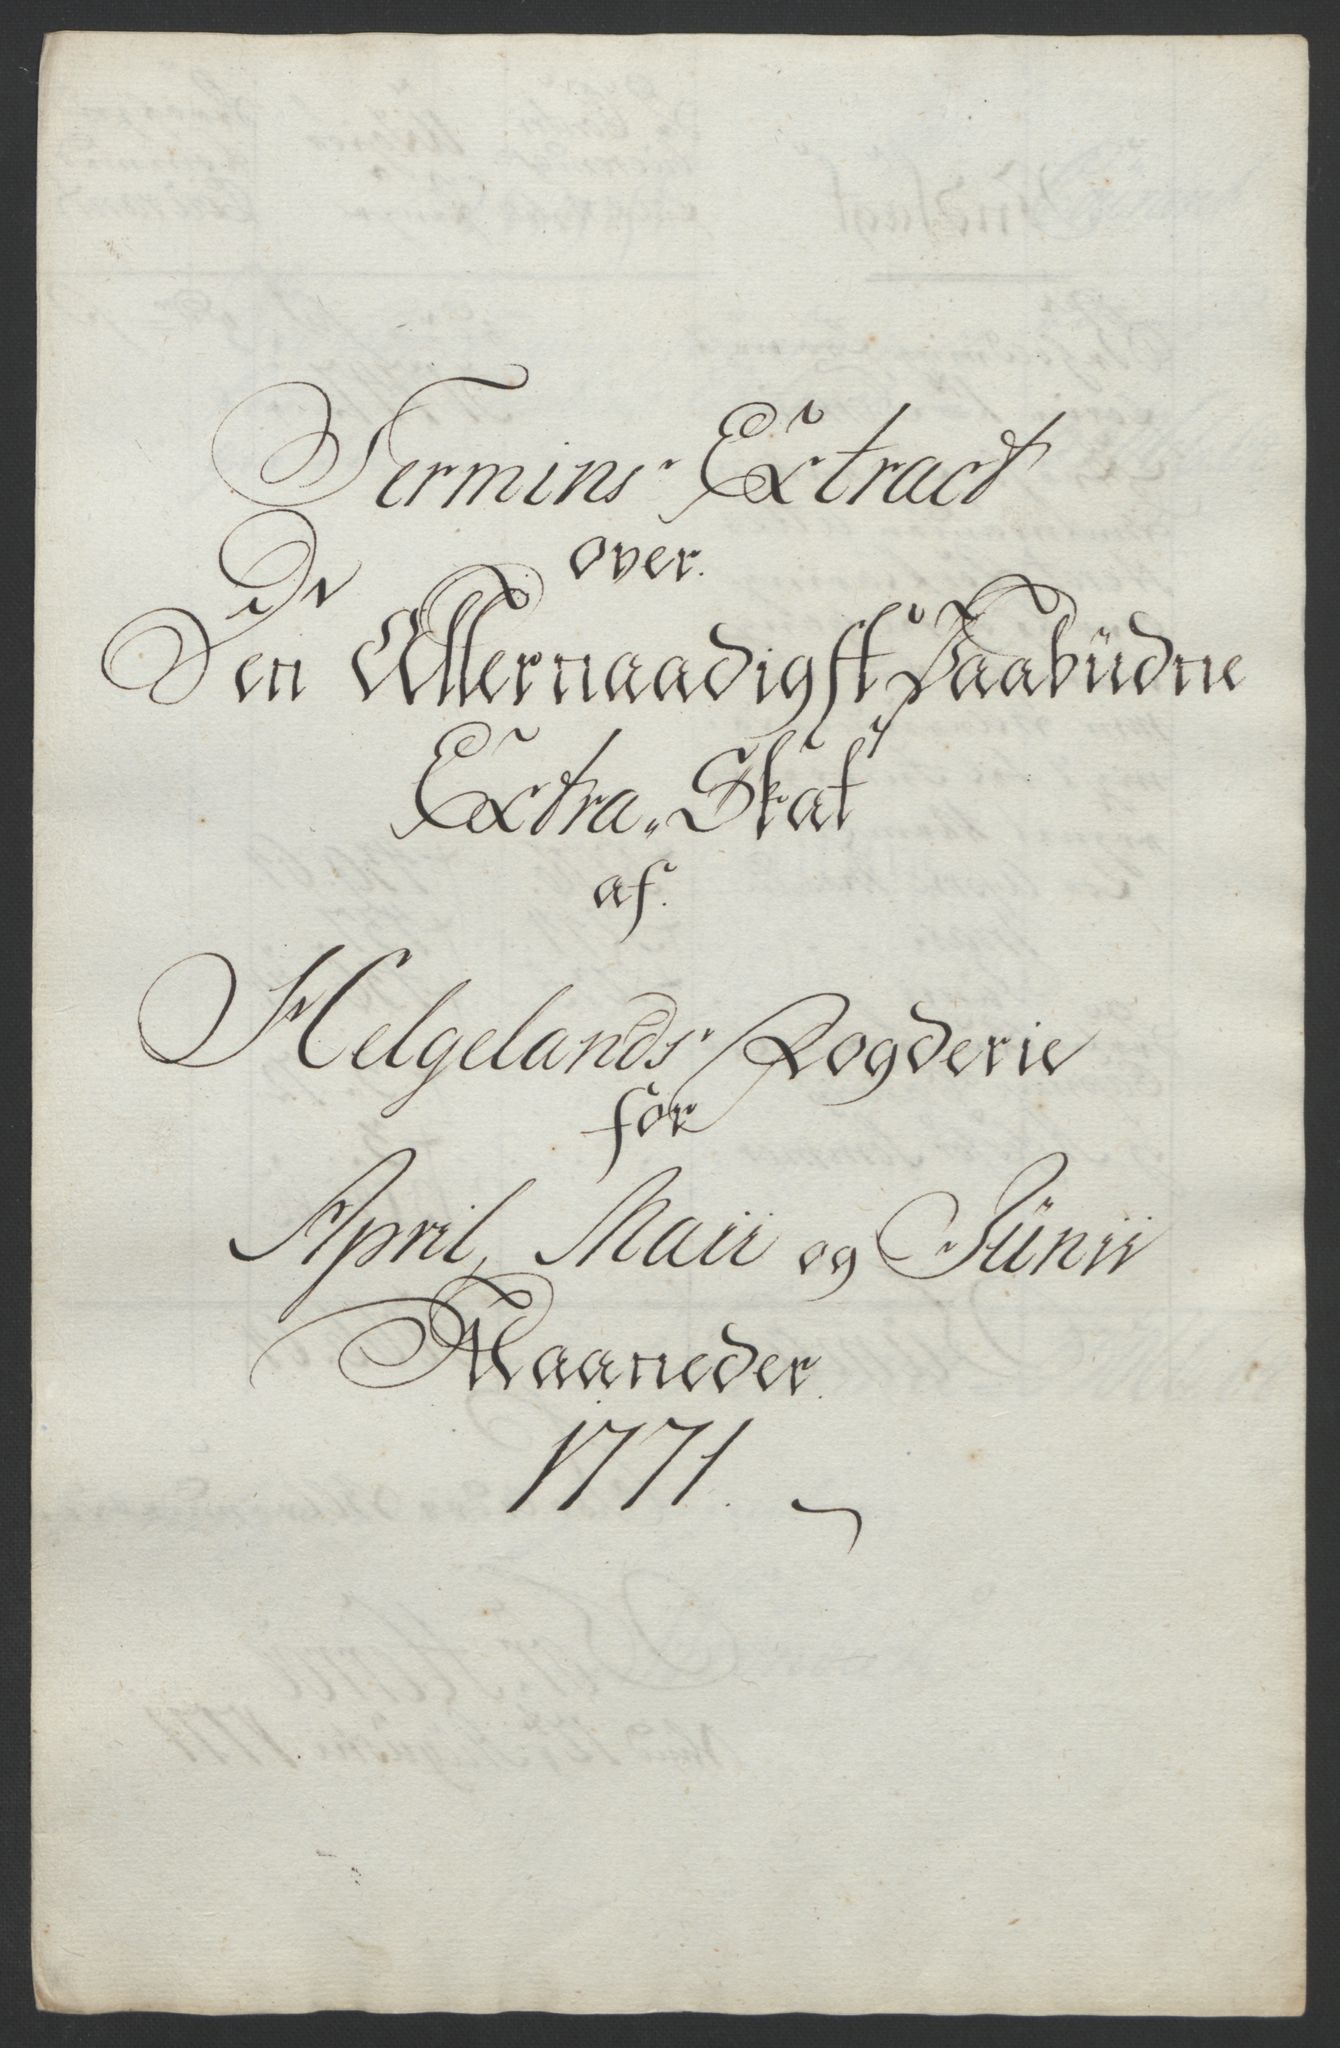 Termins Extract
over.
Den Allernaadigst Paabüdne
Extra„ Skat
af.
Helgelands Fogderie
for
April, Maii og Jünii
Maaneder.
1771.